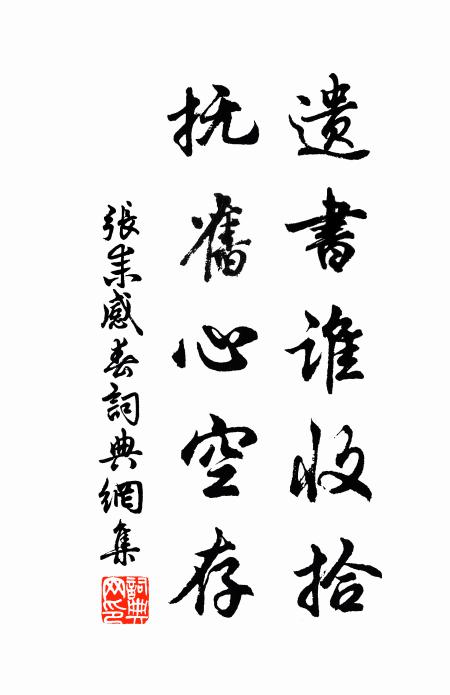 遗書誰收拾
抚舊心空存
張耒感春詞典網集
詞典网印